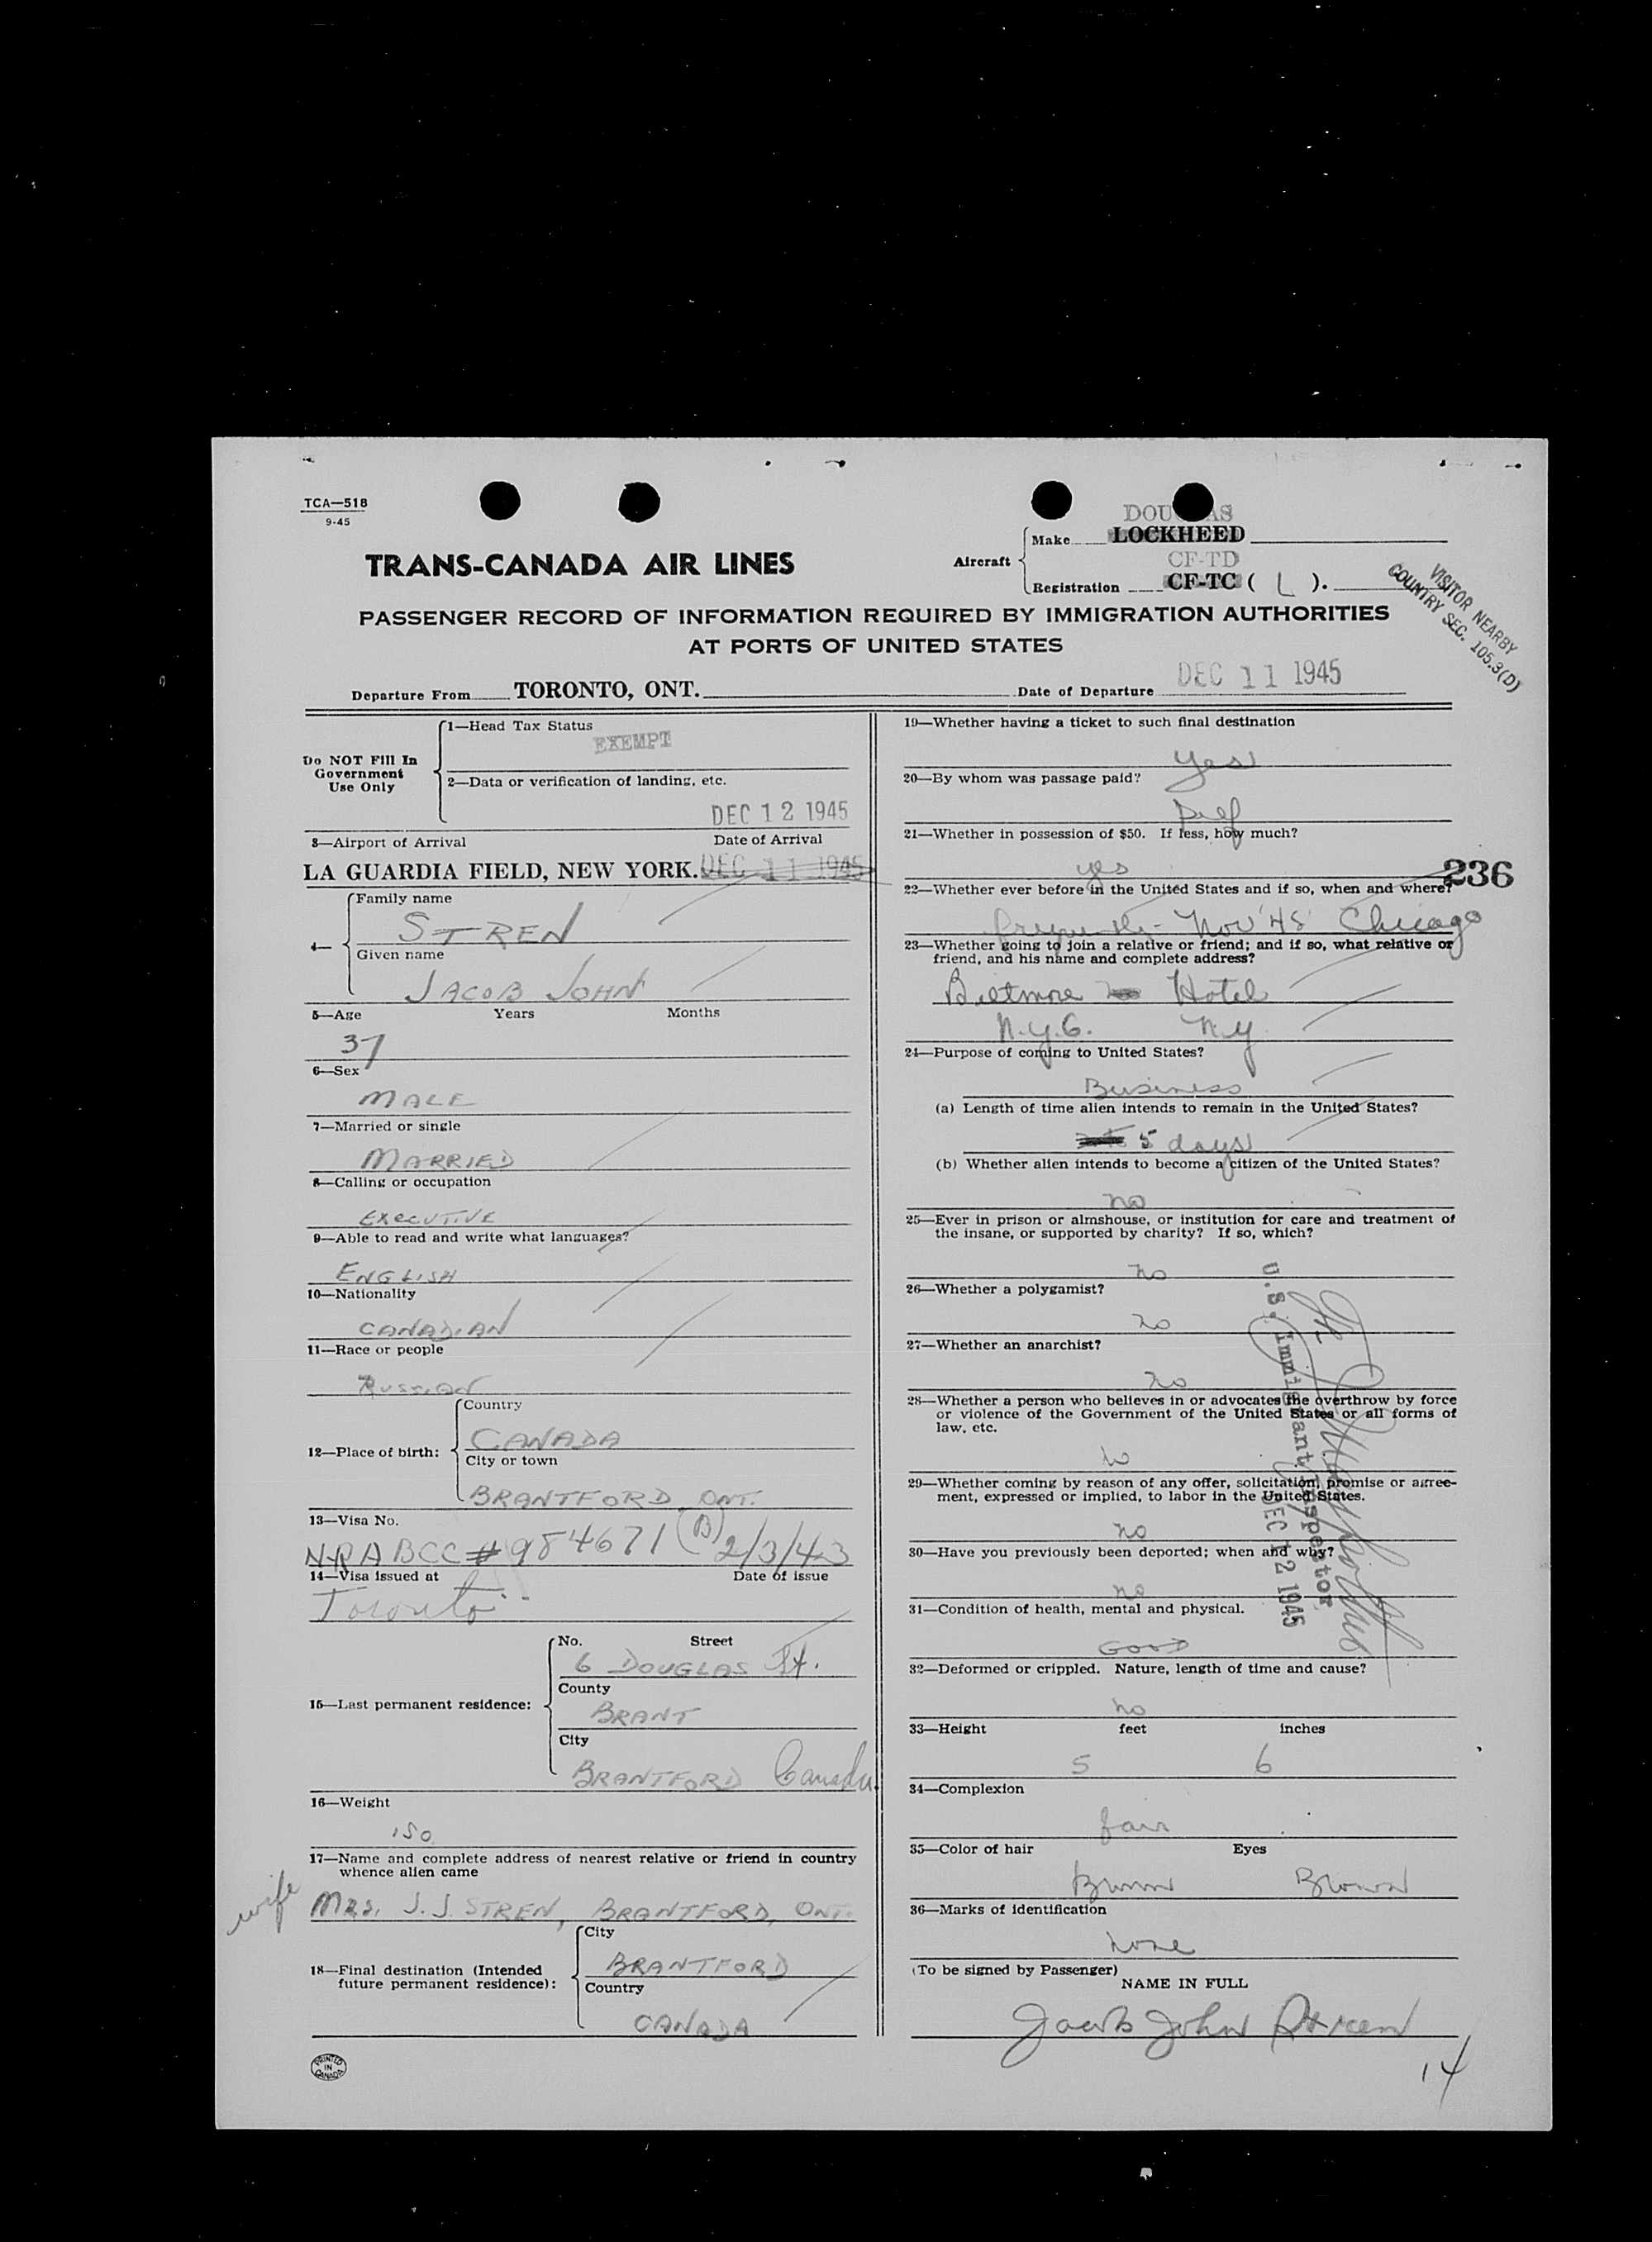 TCA—518
9-45
DOUGLAS
Make LOCKHEED
TRANS-CANADA AIR LINES
Aircraft
CF-TD
Registration CF-TC ( L ).
VISITOR NEARBY
COUNTRY SEC. 105.3(D)
PASSENGER RECORD OF INFORMATION REQUIRED BY IMMIGRATION AUTHORITIES
AT PORTS OF UNITED STATES
Departure From TORONTO, ONT.
Date of Departure DEC 11 1945
Do NOT Fill In
Government
Use Only
1—Head Tax Status
EXEMPT
2—Data or verification of landing, etc.
DEC 12 1945
3—Airport of Arrival Date of Arrival
LA GUARDIA FIELD, NEW YORK. DEC 11 1945
4—
Family name
STREN
Given name
JACOB JOHN
5—Age Years Months
37
6—Sex
MALE
7—Married or single
MARRIED
8—Calling or occupation
EXECUTIVE
9—Able to read and write what languages?
ENGLISH
10—Nationality
CANADIAN
11—Race or people
RUSSIAN
12—Place of birth:
Country
CANADA
City or town
BRANTFORD, ONT.
13—Visa No.
NRABCC #984671 (B) 2/3/43
14—Visa issued at Date of issue
Toronto
15—Last permanent residence:
No. Street
6 DOUGLAS St.
County
BRANT
City
BRANTFORD Canada
16—Weight
150
17—Name and complete address of nearest relative or friend in country
whence alien came
wife
MRS. J. J. STREN, BRANTFORD, ONT.
18—Final destination (Intended
future permanent residence):
City
BRANTFORD
Country
CANADA
PRINTED
IN
CANADA
19—Whether having a ticket to such final destination
yes
20—By whom was passage paid?
Self
21—Whether in possession of $50. If less, how much?
yes
236
22—Whether ever before in the United States and if so, when and where?
frequently - Nov '45 Chicago
23—Whether going to join a relative or friend; and if so, what relative or
friend, and his name and complete address?
Biltmore Hotel
N.Y.C. N.Y.
24—Purpose of coming to United States?
Business
(a) Length of time alien intends to remain in the United States?
5 days
(b) Whether alien intends to become a citizen of the United States?
no
25—Ever in prison or almshouse, or institution for care and treatment of
the insane, or supported by charity? If so, which?
no
26—Whether a polygamist?
no
27—Whether an anarchist?
no
28—Whether a person who believes in or advocates the overthrow by force
or violence of the Government of the United States or all forms of
law, etc.
no
29—Whether coming by reason of any offer, solicitation, promise or agree-
ment, expressed or implied, to labor in the United States.
no
30—Have you previously been deported; when and why?
no
U.S. Immigrant Inspector
DEC 12 1945
31—Condition of health, mental and physical.
GOOD
32—Deformed or crippled. Nature, length of time and cause?
no
33—Height feet inches
5 6
34—Complexion
fair
35—Color of hair Eyes
Brown Brown
36—Marks of identification
none
(To be signed by Passenger)
NAME IN FULL
Jacob John Stren
14